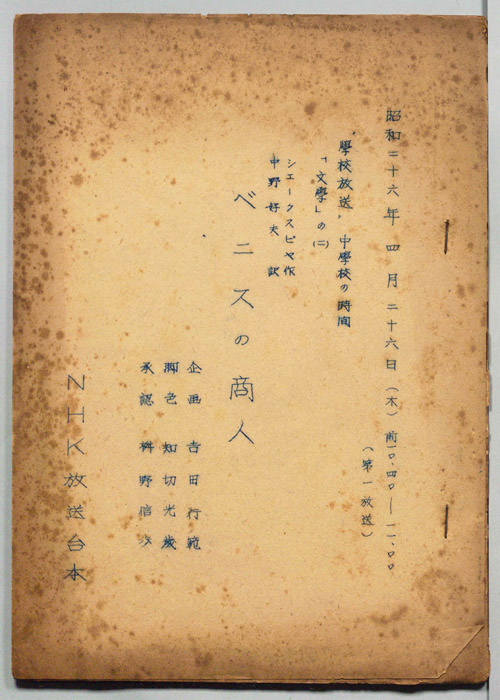 昭和二十六年 四月二十六日（木） 前一〇.四〇―一一.〇〇
（第一放送）
學校放送, 中學校の時間
「文學」の（二）
シェークスピヤ作
中野好夫 訳
ベニスの商人
企画 吉田行範
脚色 知切光歳
承認 桝野信歩
NHK放送台本